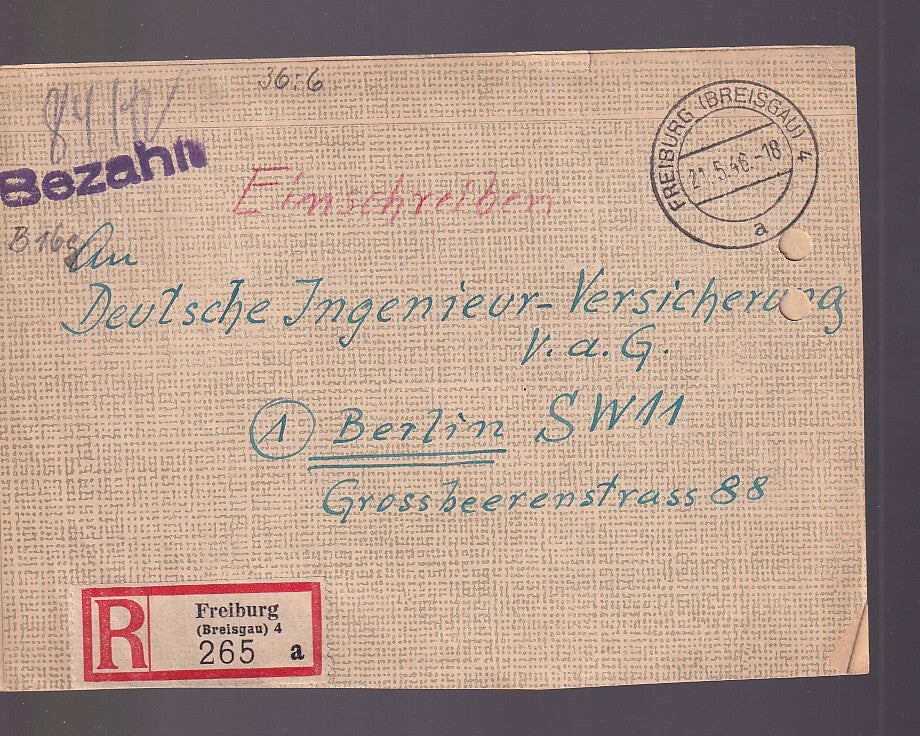 36:6
84
Bezahlt
Einschreiben
FREIBURG (BREISGAU) 4
21.5.46.-18
a
B 16a
An
Deutsche Ingenieur-Versicherung
V. a. G.
1 Berlin SW11
Grossbeerenstrass 88
R
Freiburg
(Breisgau) 4
265 a